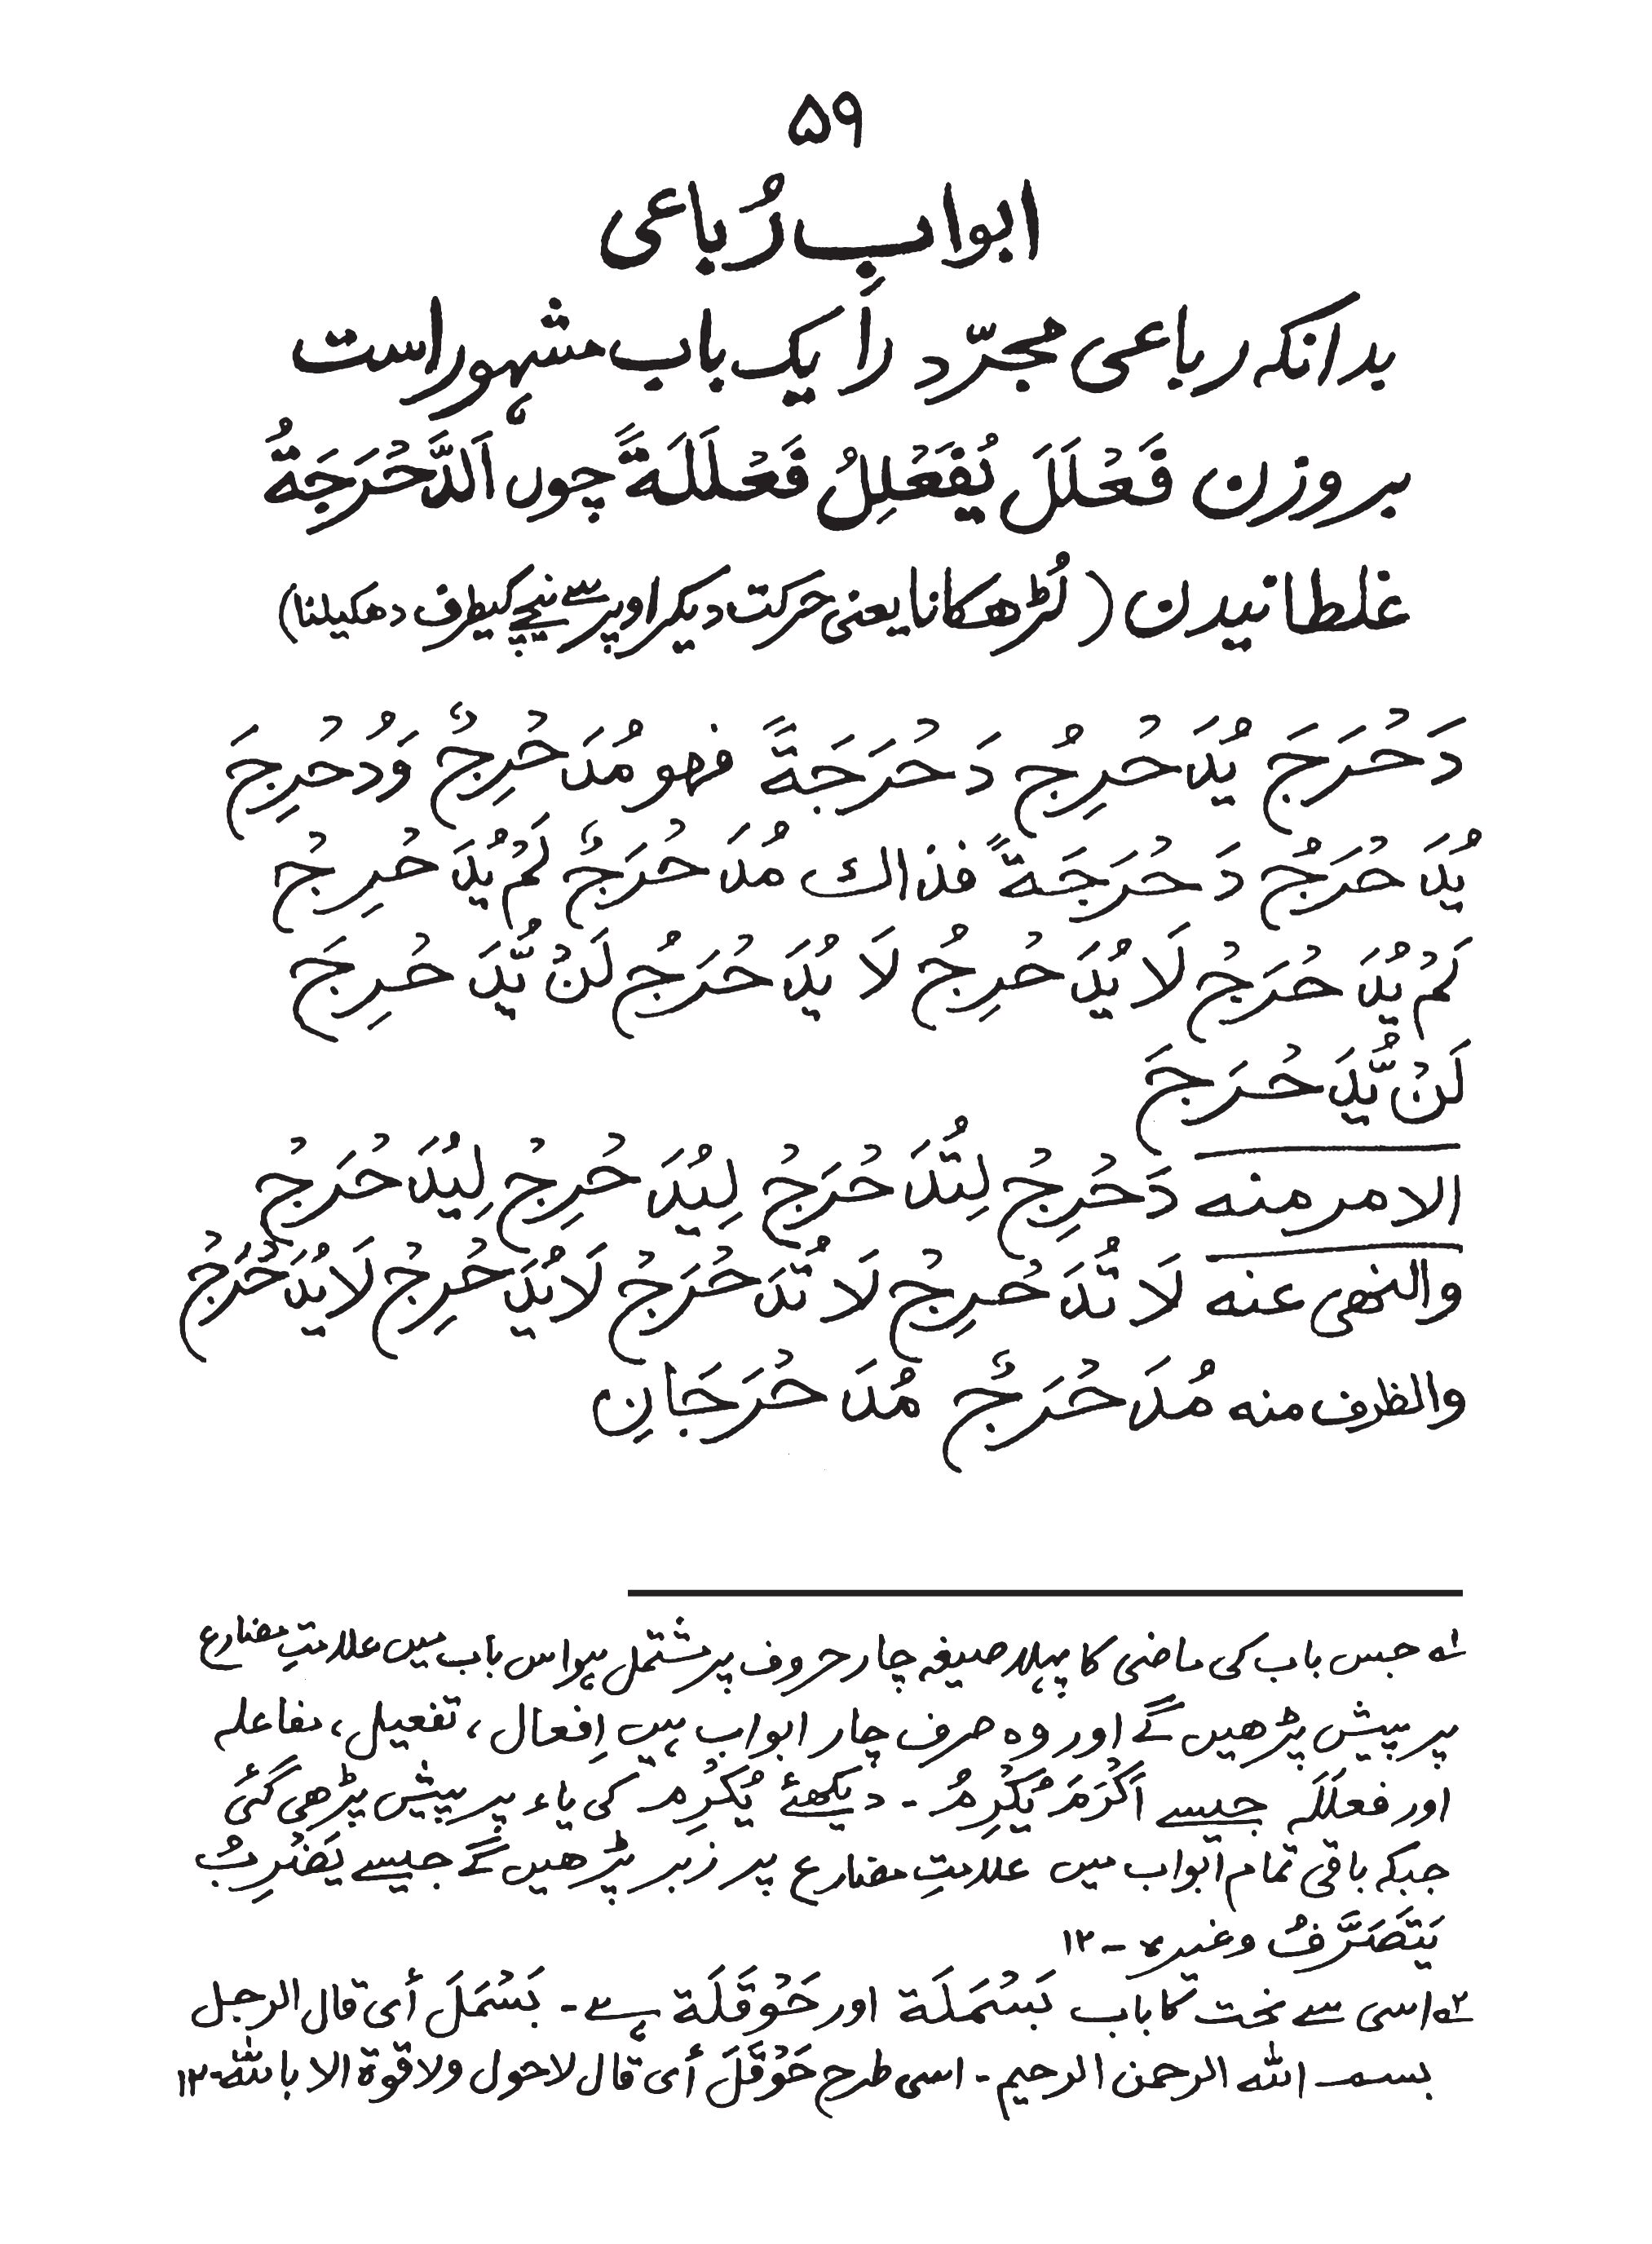 ۵۹
ابوابِ رُباعی
بدانکہ رباعی مجرّد را یک باب مشہور است
بروزن فَعْلَلَ یُفَعْلِلُ فَعْلَلَةً چوں اَلدَّحْرَجَةُ
غلطانیدن (لُڑھکانا یعنی حرکت دیکر اوپر سے نیچے کیطرف دھکیلنا)
دَحْرَجَ یُدَحْرِجُ دَحْرَجَةً فھو مُدَحْرِجٌ وَدُحْرِجَ
یُدَحْرَجُ دَحْرَجَةً فذاك مُدَحْرَجٌ لَمْ یُدَحْرِجْ
لَمْ یُدَحْرَجْ لَا یُدَحْرِجُ لَا یُدَحْرَجُ لَنْ یُّدَحْرِجَ
لَنْ یُّدَحْرَجَ
الامر منه دَحْرِجْ لِتُدَحْرَجْ لِیُدَحْرِجْ لِیُدَحْرَجْ
والنھی عنه لَا تُدَحْرِجْ لَا تُدَحْرَجْ لَا یُدَحْرِجْ لَا یُدَحْرَجْ
والظرف منه مُدَحْرَجٌ مُدَحْرَجَانِ
۱؎ جس باب کی ماضی کا پہلا صیغہ چار حروف پر مشتمل ہو اس باب میں علامتِ مضارع
پر پیش پڑھیں گے اور وہ صرف چار ابواب ہیں اِفعال، تفعیل، مفاعلہ
اور فعلَلَہ جیسے اَکْرَمَ یُکْرِمُ ۔ دیکھئے یُکْرِم کی یاء پر پیش پڑھی گئی
جبکہ باقی تمام ابواب میں علامتِ مضارع پر زبر پڑھیں گے جیسے یَضْرِبُ
یَتَصَرَّفُ وغیرہ ۔ ۱۲
۲؎ اسی سے نحت کا باب بَسْمَلَة اور حَوْقَلَة ہے ۔ بَسْمَلَ أی قال الرجل
بسم اللّٰہ الرحمن الرحیم ۔ اسی طرح حَوْقَلَ أی قال لاحول ولا قوة الا باللّٰہ ۔ ۱۲